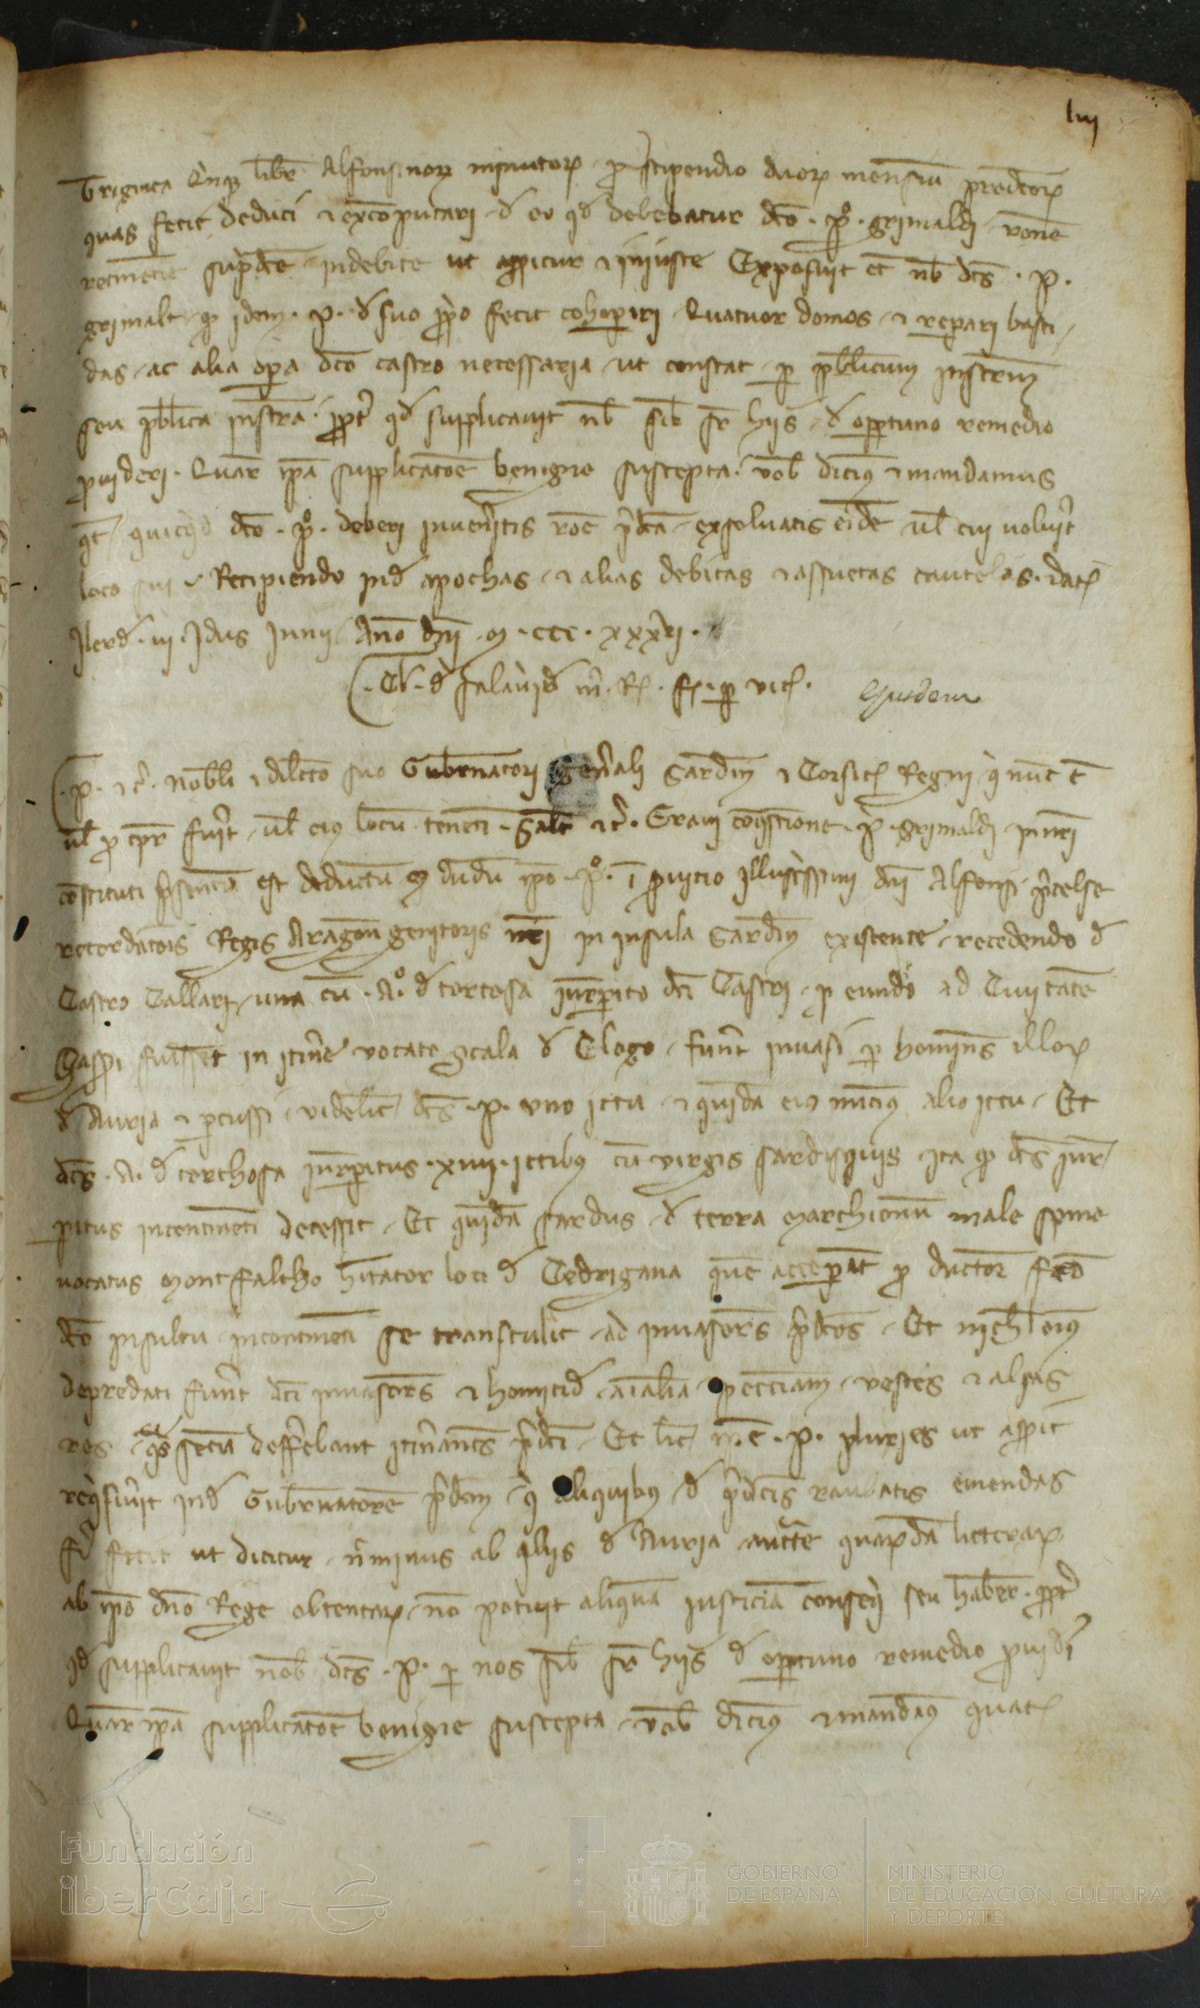 lvij
triginta quinq libr Alfonsinorz minutorz pro stipendio duorz mensium predictorz
quas fecit deduci & excomputari d eo qd debebatur dco . po . grimaldi vone
retinencie supdce indebite ut asseritur & injuste Exposuit et nb dcs . p .
grimalt q idem . p . d suo ppo fecit cohoperiri Quatuor domos & repari basti
das ac alia opa dco castro necessaria ut constat p pblicum instrum
seu pblica instra ppt qd supplicavit nb sib sr hijs d opptuno remedio
provideri . Quar ipa supplicatoe benigne suscepta . vob dicimus & mandamus
qt quicqd dco . po . deberi inveneritis roe pdca exsolvatis eide vl cui voluit
loco sui Recipiendo ind apochas & alias debitas & assuetas cautelas . dat
Ilerd . iii . Idus Junii Ano dni . m . ccc . xxxvi .
p . &c . Nobili & dilecto suo Gubernatori Generali Sardin & Corsice Regni q nuc e
vl p tpr fuit vl eius locu tenenti . Salt &c . Gravi coquestione . p . grimaldi
constituti psencia est deductu q dudu ipo . po . i servicio Illustrissimi dni Alfonsi pcelse
recordatois Regis Aragon genitoris nri in insula Sardin existente recedendo d
Castro Callari una cu . Ao . d tortosa jurispito dci Castri p eundo ad Civitate
Sasseri fuisset in itinere vocate scala d Clogo funt invasi p homines illorz
d Auria & percussi videlicet dcs . p . uno ictu & quida eius nuncius alio ictu Et
dcs . A . d torthosa jurispitus . xiiii . ictibus cu virgis sardisquis ita q dcs juris
pitus incontinenti decessit Et quida sardus d terra marchionu male spine
vocatus montfalcho hitator loci d Cedrigana que acceperat p ductor fco
dco insultu incontinenti se transtulit ad invasores pdcos Et nichlominus
depredati funt dci invasores & homicid aialia pecuniam vestes & alias
res qs secu defferebant itinantes pdci Et licet . p . pluries ut asserit
requisivit ind Gubernatore pdcm q aliquibus d pdcis raubatis emendas
fi fecit ut dicitur nminus ab aliis d Auria auctte quarda litterarz
ab ipo dno Rege obtentarz no potuit aliqua justicia consequi seu haber ppt
qd supplicavit nob dcs . p . p nos sib sr hijs d opptuno remedio provideri
Quar ipa supplicatoe benigne suscepta vob dicimus & mandamus quat
Fundación
iberCaja
GOBIERNO
DE ESPAÑA
MINISTERIO
DE EDUCACIÓN, CULTURA
Y DEPORTE